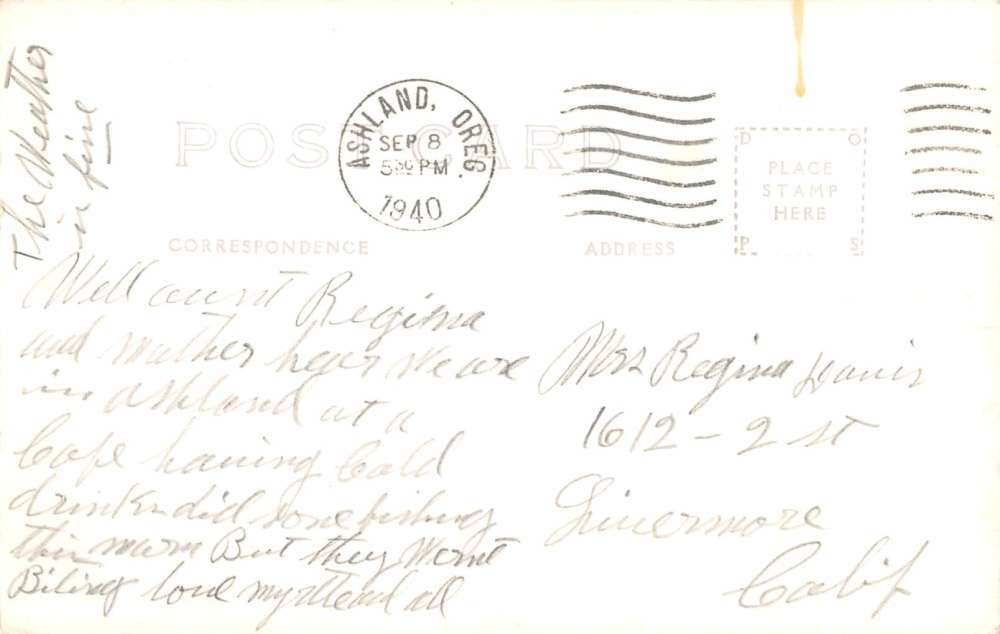 The Weather
is fine
POST CARD
ASHLAND, OREG.
SEP 8
5 30 PM
1940
D O
PLACE
STAMP
HERE
P S
CORRESPONDENCE
ADDRESS
Well aunt Regina
and mother hear we are
in Ashland at a
Cafe having Cold
drinks did some fishing
this morn But they wernt
Biting love myrtle and all
Mrs Regina Davis
1612 - 2 st
Livermore
Calif